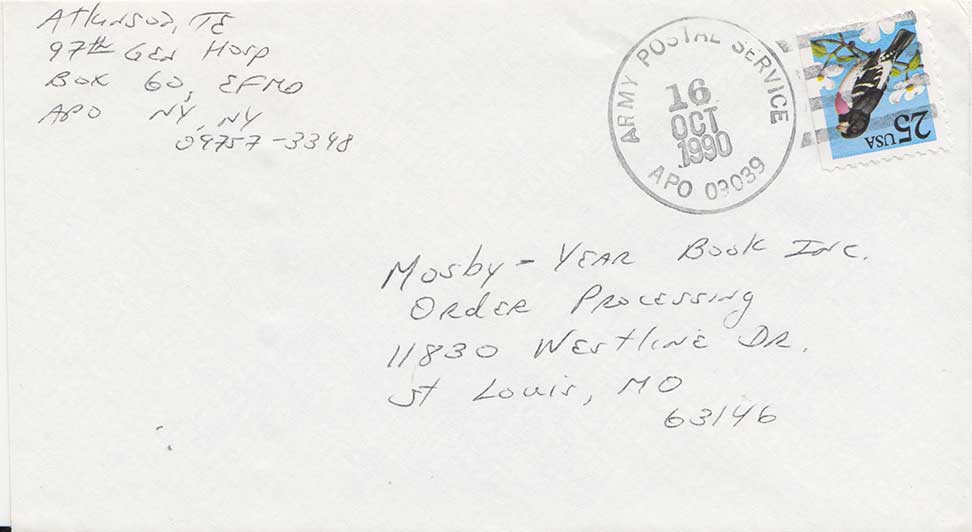 Atkinson, TE
97th Gen Hosp
Box 60, EFMD
APO NY, NY
09757-3348
ARMY POSTAL SERVICE
16
OCT
1990
APO 09039
25 USA
Mosby - Year Book Inc.
Order Processing
11830 Westline Dr.
St Louis, MO
63146